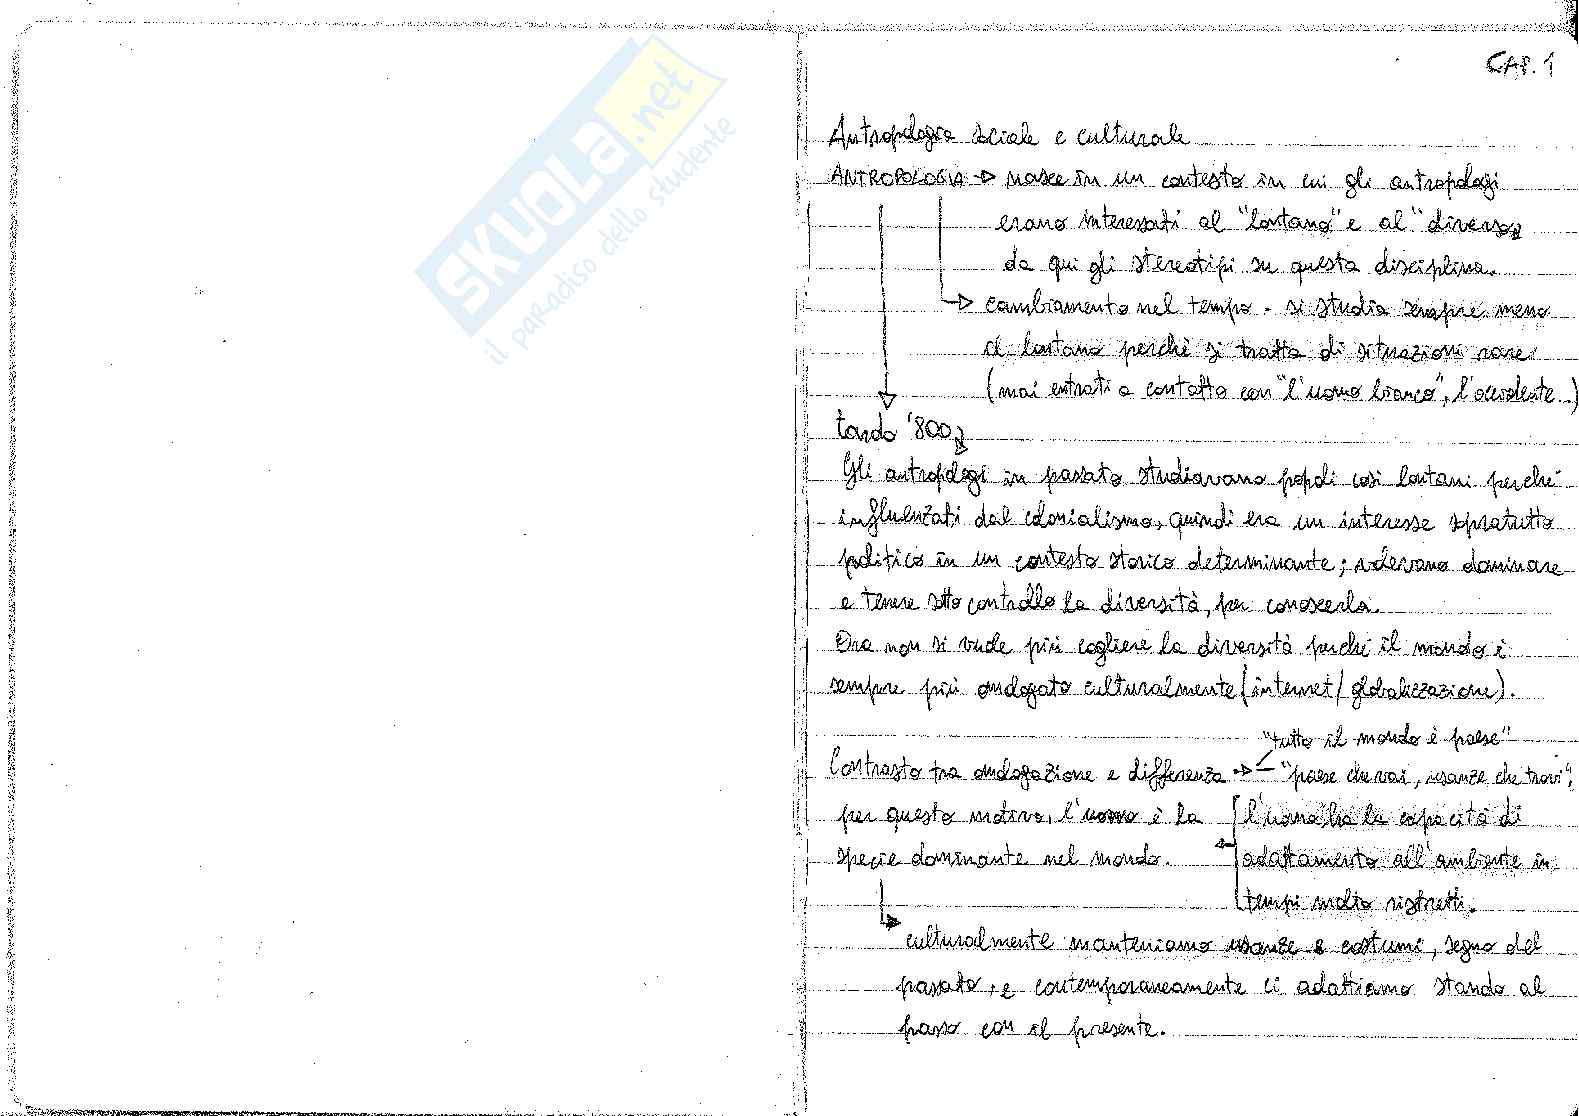 SKUOLA.net
il paradiso dello studente
CAP. 1
Antropologia sociale e culturale
ANTROPOLOGIA → nasce in un contesto in cui gli antropologi
erano interessati al "lontano" e al "diverso"
da qui gli stereotipi su questa disciplina.
→ cambiamento nel tempo. si studia sempre meno
il lontano perchè si tratta di situazioni rare
(mai entrati a contatto con "l'uomo bianco", l'occidente.)
tardo '800
Gli antropologi in passato studiavano popoli così lontani perchè
influenzati dal colonialismo, quindi era un interesse sopratutto
politico in un contesto storico determinante; volevano dominare
e tenere sotto controllo la diversità, per conoscerla.
Ora non si vuole più cogliere la diversità perchè il mondo è
sempre più omologato culturalmente (internet/globalizzazione).
"tutto il mondo è paese"
Contrasto tra omologazione e differenza → "paese che vai, usanze che trovi",
per questo motivo, l'uomo è la
specie dominante nel mondo.
l'uomo ha la capacità di
adattamento all'ambiente in
tempi molto ristretti.
culturalmente manteniamo usanze e costumi, segno del
passato, e contemporaneamente ci adattiamo stando al
passo con il presente.